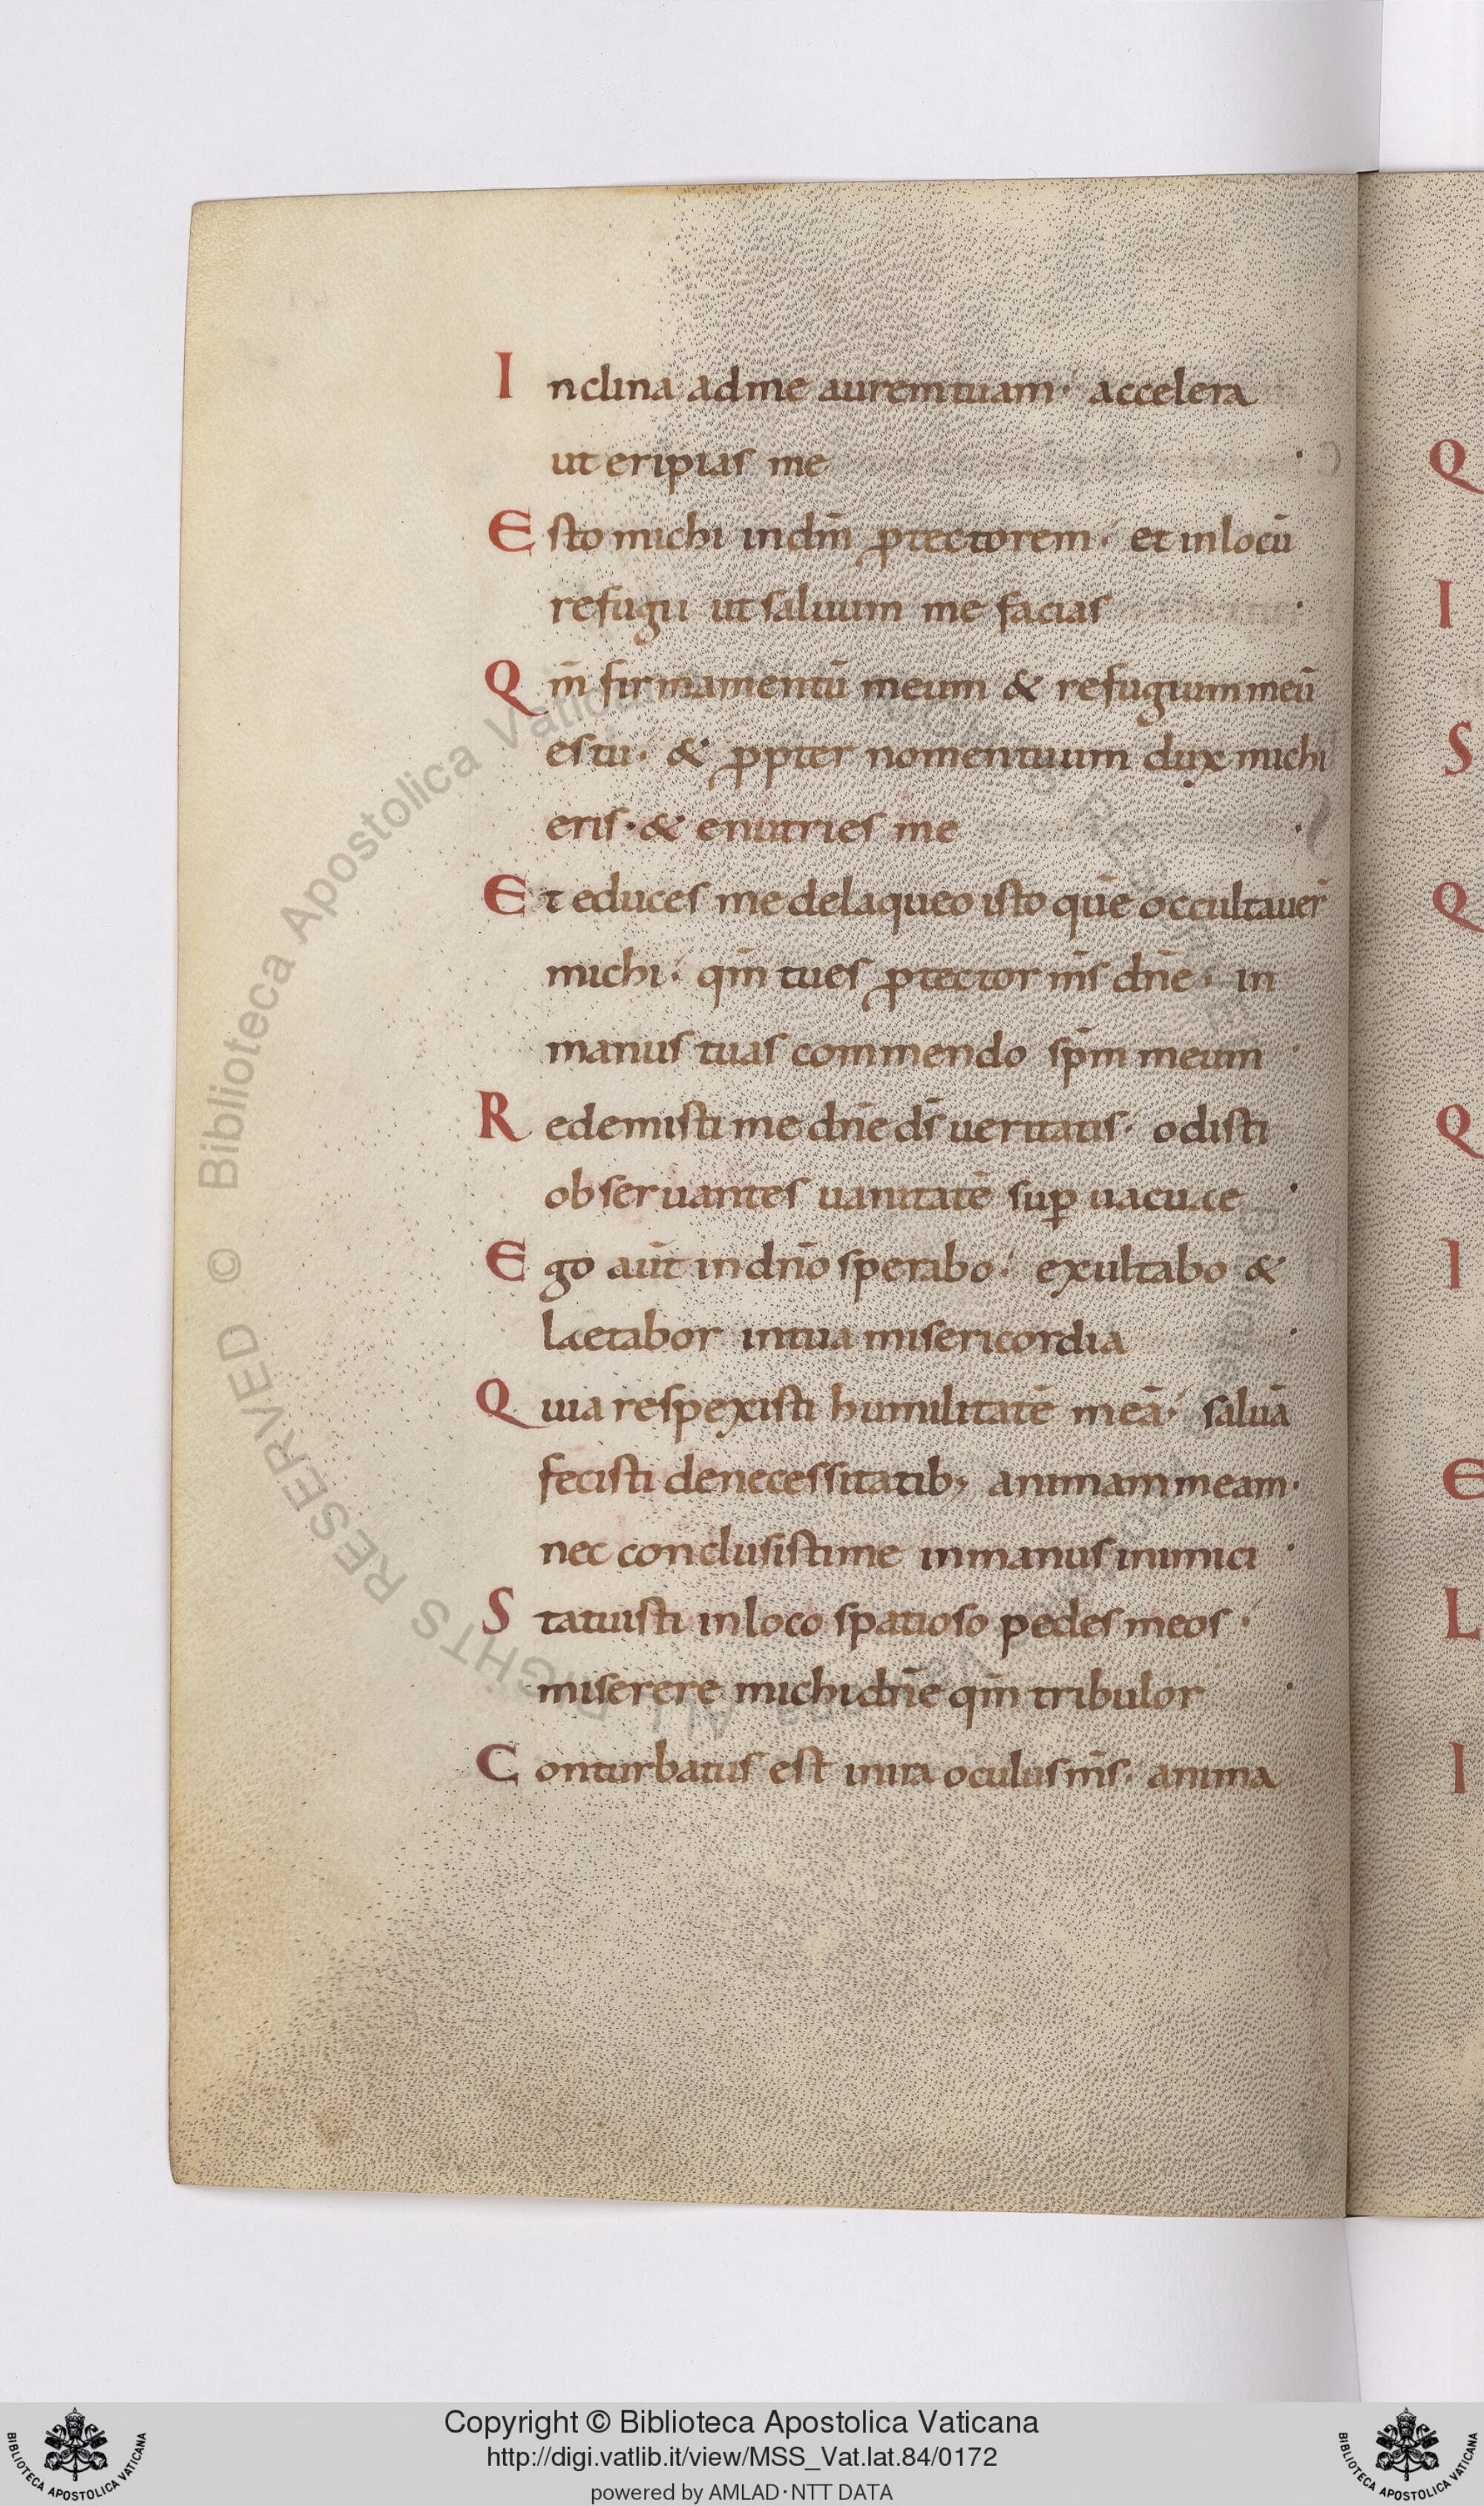 Inclina ad me aurem tuam·' accelera
ut eripias me ·
Esto michi in dm̄ ꝓtectorem·' et in locū
refugii ut saluum me facias ·
Qm̄ firmamentū meum & refugium meū
es tu·' & ꝓpter nomen tuum dux michi
eris·& enutries me ·
Et educes me de laqueo isto quē occultauer̄
michi·' qm̄ tu es ꝓtector m̄s dn̄e· in
manus tuas commendo sp̄m meum ·
Redemisti me dn̄e ds̄ ueritatis·' odisti
obseruantes uanitatē suꝑ uacuae ·
Ego aūt in dn̄o sperabo·' exultabo &
laetabor in tua misericordia ·
Quia respexisti humilitatē meā·' saluā
fecisti de necessitatib; animam meam·
nec conclusisti me in manus inimici ·
Statuisti in loco spatioso pedes meos·'
miserere michi dn̄e qm̄ tribulor ·
Conturbatus est in ira oculus m̄s·' anima
Q
I
S
Q
Q
I
E
L
I
© Biblioteca Apostolica Vaticana
ALL RIGHTS RESERVED
Copyright © Biblioteca Apostolica Vaticana
http://digi.vatlib.it/view/MSS_Vat.lat.84/0172
powered by AMLAD·NTT DATA
BIBLIOTECA APOSTOLICA VATICANA
BIBLIOTECA APOSTOLICA VATICANA